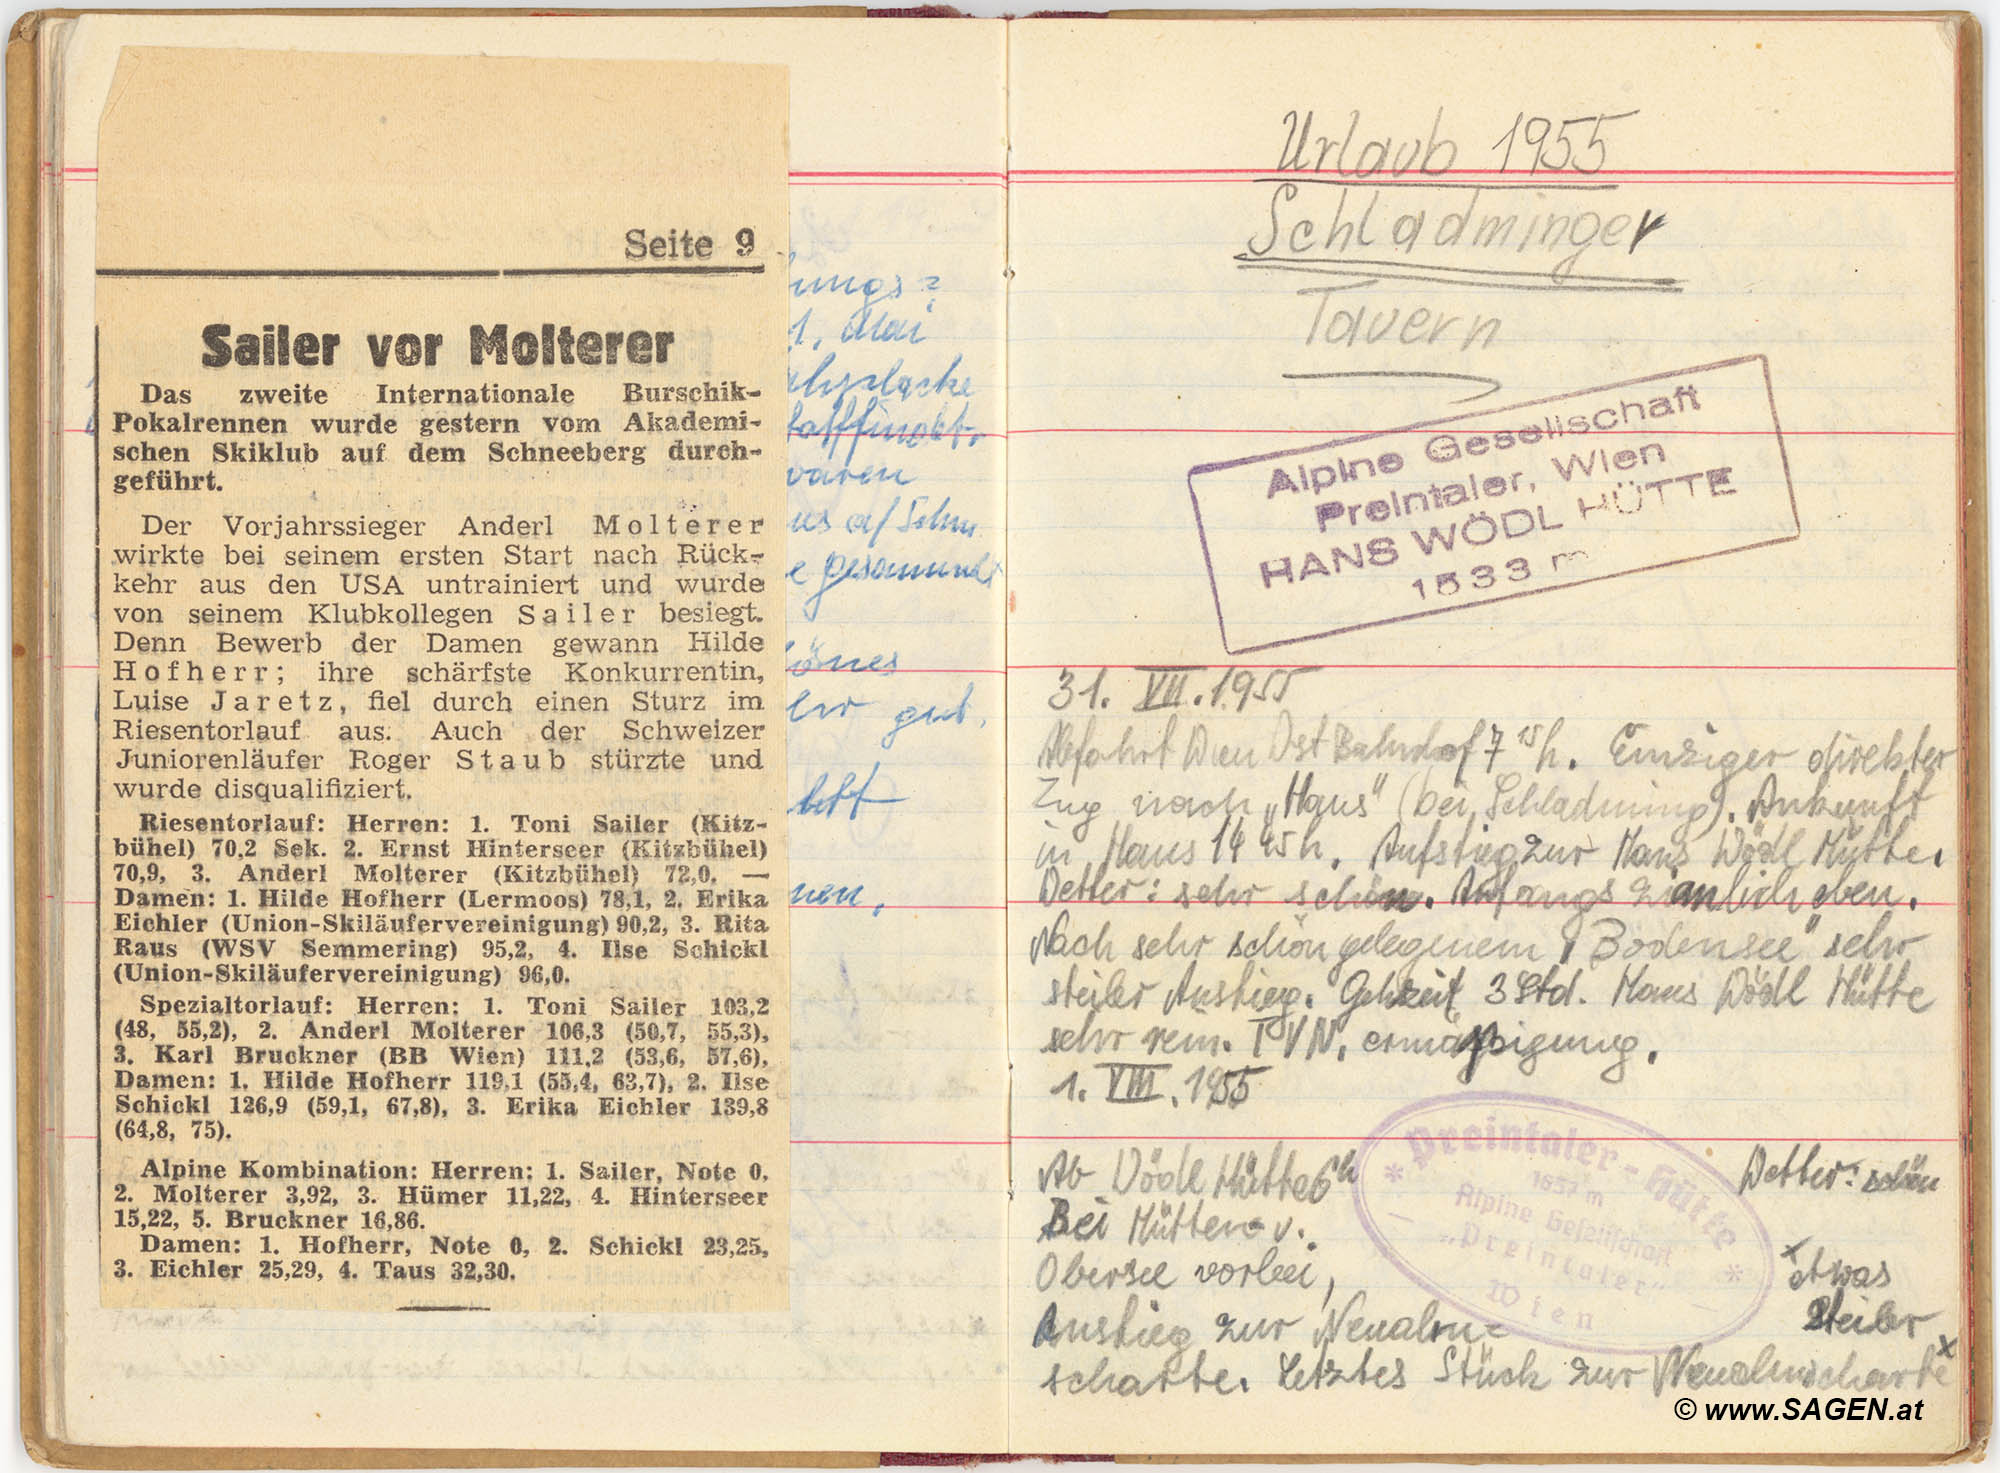 Seite 9
Sailer vor Molterer
Das zweite Internationale Burschik-
Pokalrennen wurde gestern vom Akademi-
schen Skiklub auf dem Schneeberg durch-
geführt.
Der Vorjahrssieger Anderl Molterer
wirkte bei seinem ersten Start nach Rück-
kehr aus den USA untrainiert und wurde
von seinem Klubkollegen Sailer besiegt.
Denn Bewerb der Damen gewann Hilde
Hofherr; ihre schärfste Konkurrentin,
Luise Jaretz, fiel durch einen Sturz im
Riesentorlauf aus. Auch der Schweizer
Juniorenläufer Roger Staub stürzte und
wurde disqualifiziert.
Riesentorlauf: Herren: 1. Toni Sailer (Kitz-
bühel) 70,2 Sek. 2. Ernst Hinterseer (Kitzbühel)
70,9, 3. Anderl Molterer (Kitzbühel) 72,0. —
Damen: 1. Hilde Hofherr (Lermoos) 78,1, 2. Erika
Eichler (Union-Skiläufervereinigung) 90,2, 3. Rita
Raus (WSV Semmering) 95,2, 4. Ilse Schickl
(Union-Skiläufervereinigung) 96,0.
Spezialtorlauf: Herren: 1. Toni Sailer 103,2
(48, 55,2), 2. Anderl Molterer 106,3 (50,7, 55,3),
3. Karl Bruckner (BB Wien) 111,2 (53,6, 57,6),
Damen: 1. Hilde Hofherr 119,1 (55,4, 63,7), 2. Ilse
Schickl 126,9 (59,1, 67,8), 3. Erika Eichler 139,8
(64,8, 75).
Alpine Kombination: Herren: 1. Sailer, Note 0,
2. Molterer 3,92, 3. Hümer 11,22, 4. Hinterseer
15,22, 5. Bruckner 16,86.
Damen: 1. Hofherr, Note 0, 2. Schickl 23,25,
3. Eichler 25,29, 4. Taus 32,30.
ungs=
1. Mai
waren
gut.
Urlaub 1955
Schladminger
Tauern
Alpine Gesellschaft
Preintaler, Wien
HANS WÖDL HÜTTE
1533 m
31. VII. 1955
Abfahrt Wien Ost Bahnhof 7 15 h. Einziger direkter
Zug nach „Haus" (bei Schladming). Ankunft
in Haus 14 45 h. Aufstieg zur Hans Wödl Hütte.
Wetter: sehr schön. Anfangs ziemlich eben.
Nach sehr schön gelegenem „Bodensee" sehr
steiler Anstieg. Gehzeit 3 Std. Hans Wödl Hütte
sehr rein. TVN. ermäßigung.
1. VIII. 1955
Preintaler-Hütte
1657 m
Alpine Gesellschaft
„Preintaler"
Wien
Ab Wödl Hütte 6h Wetter: schön
Bei Hütten- v.
Obersee vorbei, x etwas
Anstieg zur Neualm- steiler
scharte. Letztes Stück zur Neualmscharte x
© www.SAGEN.at